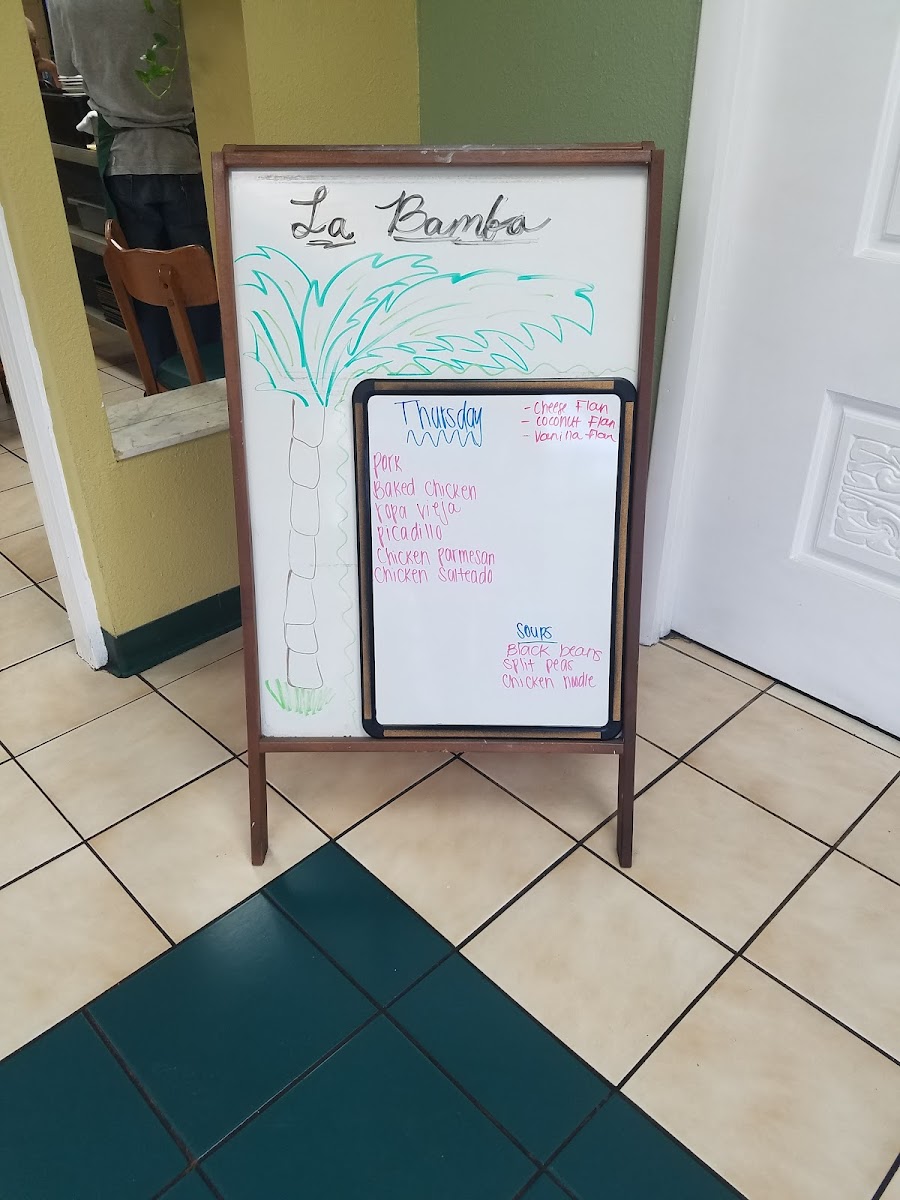 La Bamba
Thursday
- Cheese Flan
- Coconut Flan
- Vanilla Flan
Pork
Baked Chicken
ropa vieja
picadillo
Chicken parmesan
Chicken Salteado
Soups
Black beans
Split peas
Chicken noodle